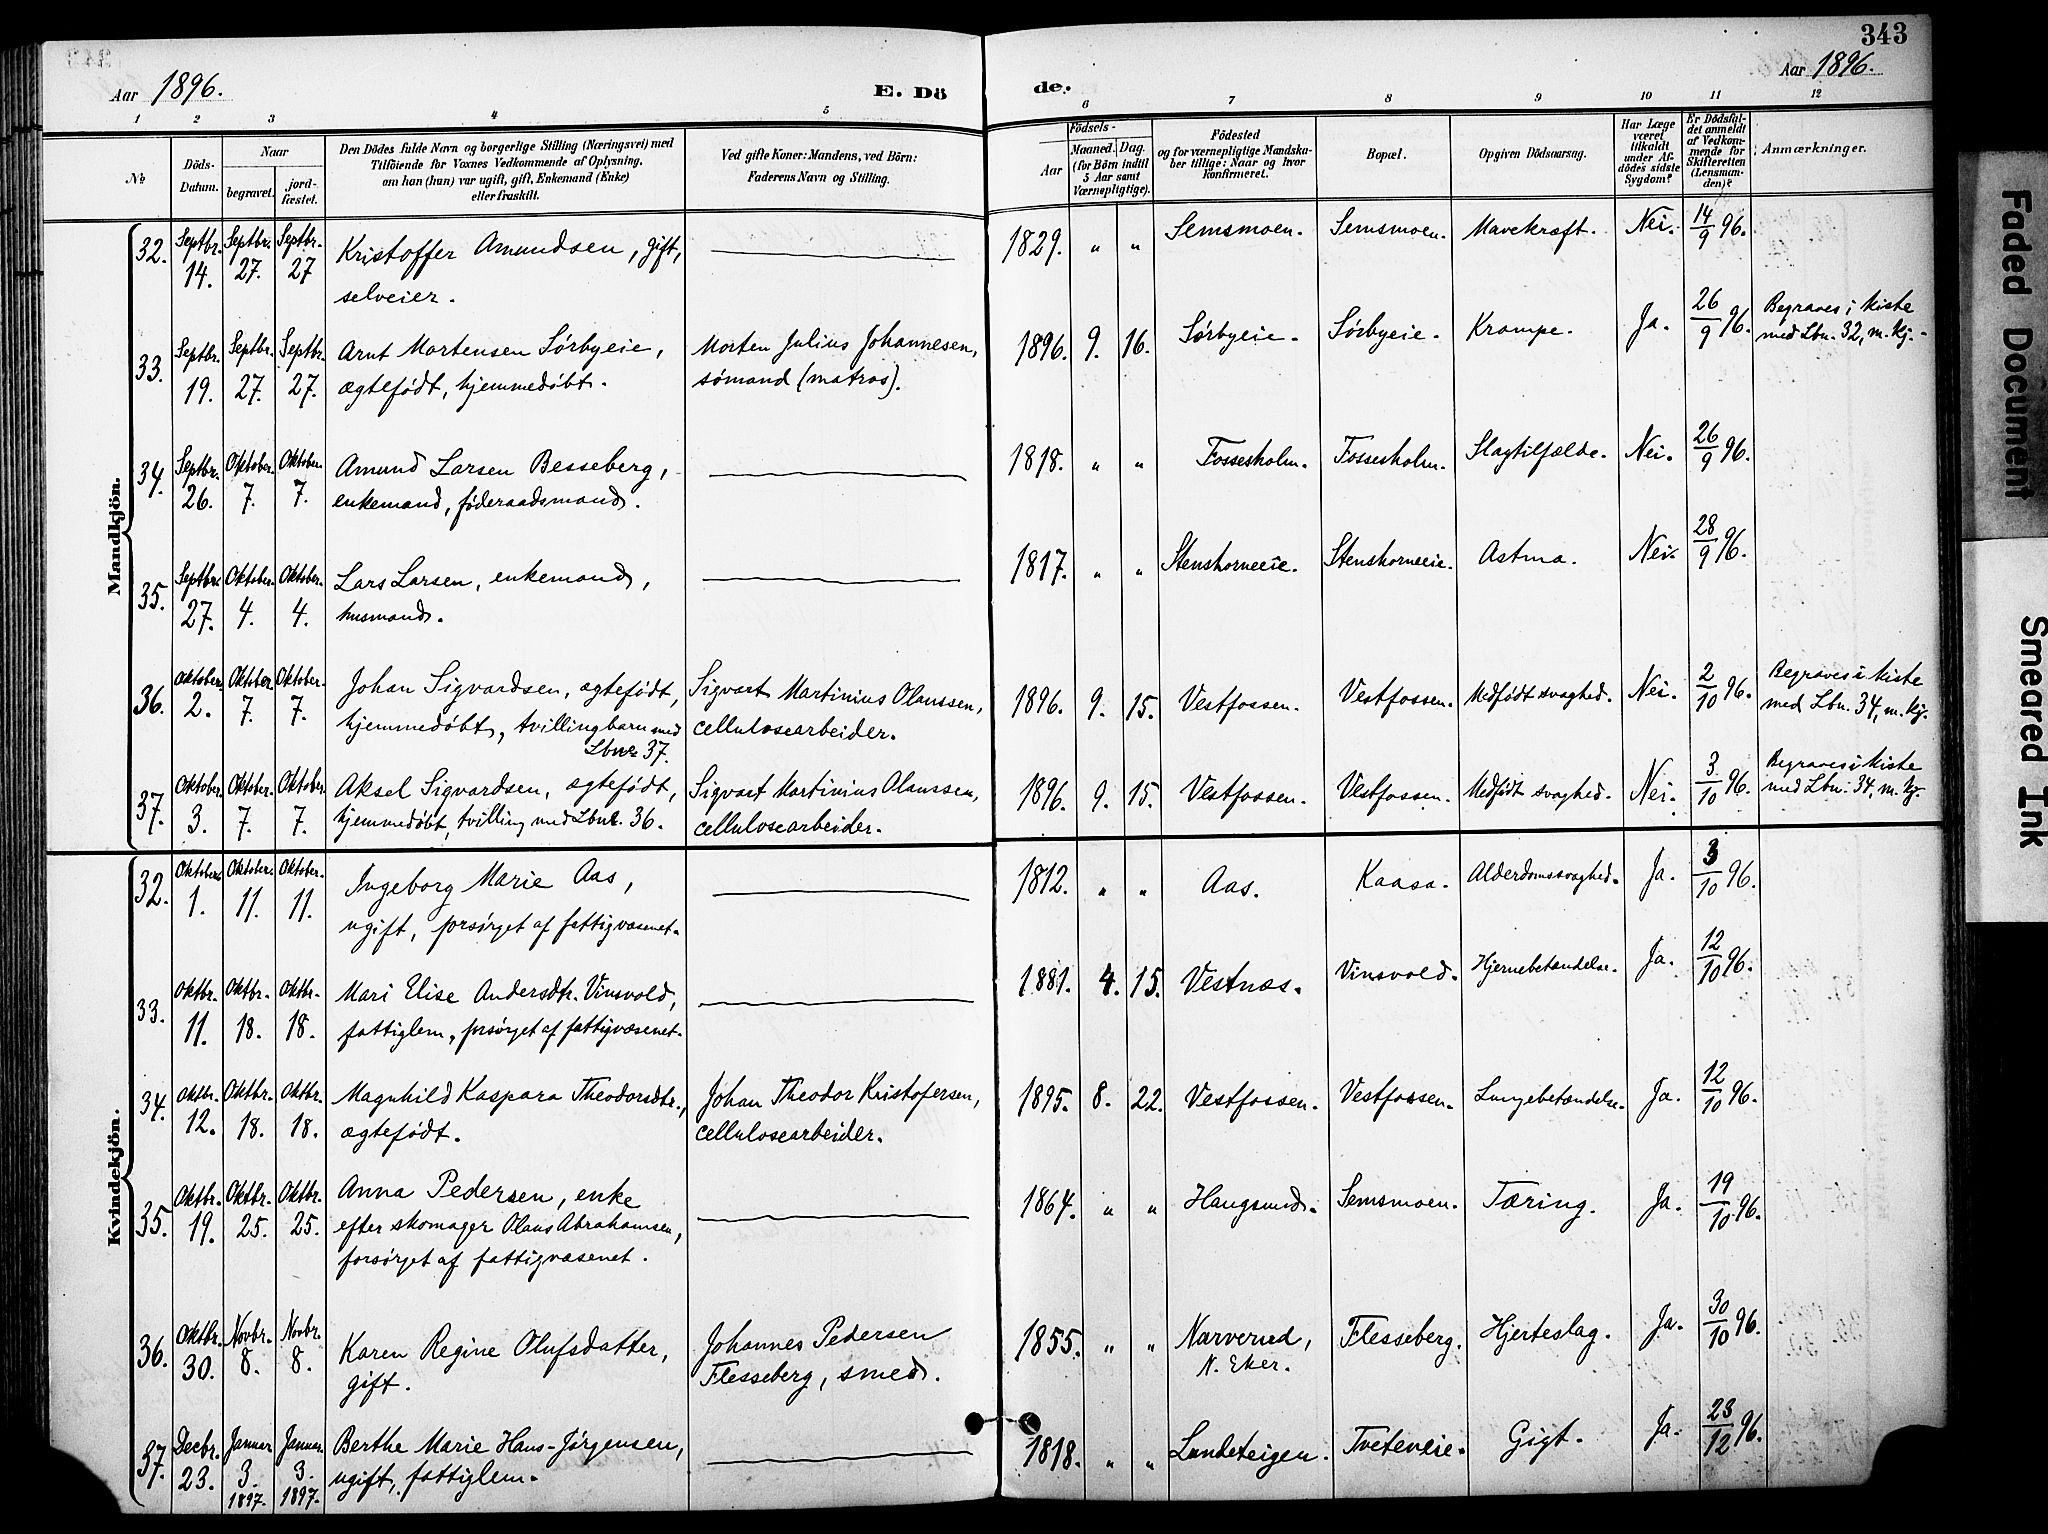 343
Aar 1896.
E. Dö
de.
Aar 1896.
1 2 3 4 5 6 7 8 9 10 11 12
№
Döds-
Datum.
Naar
begravet.
jord-
fæstet.
Den Dödes fulde Navn og borgerlige Stilling (Næringsvei) med
Tilföiende for Voxnes Vedkommende af Oplysning,
om han (hun) var ugift, gift, Enkemand (Enke)
eller fraskilt.
Ved gifte Koner: Mandens, ved Börn:
Faderens Navn og Stilling.
Födsels-
Aar
Maaned. Dag.
(for Börn indtil
5 Aar samt
Værnepligtige).
Födested
og for værnepligtige Mandska-
ber tillige: Naar og hvor
konfirmeret.
Bopæl.
Opgiven Dödsaarsag.
Har Læge
været
tilkaldt
under Af-
dödes sidste
Sygdom?
Er Dödsfal-
det anmeldt
af Vedkom-
mende for
Skifteretten
(Lensman-
den)?
Anmærkninger.
Mandkjön.
32. Septbr. 14. Septbr. 27. Septbr. 27 Kristoffer Amundsen, gift,
selveier.
1829. " " Semsmoen. Semsmoen. Mavekræft. Nei. 14/9 96.
33. Septbr. 19. Septbr. 27. Septbr. 27. Arnt Mortensen Sørbyeie,
ægtefødt, hjemmedøbt.
Morten Julius Johannesen,
sømand (matros).
1896. 9. 16. Sørbyeie. Sørbyeie. Krampe. Ja. 26/9 96.
Begraves i kiste
med Lbn. 32, m. kj.
34. Septbr. 26. Oktober 7. Oktober 7. Amund Larsen Besseberg,
enkemand, føderaadsmand.
1818. " " Fossesholm. Fossesholm. Slagtilfælde. Nei. 26/9 96.
35. Septbr. 27. Oktober 4. Oktober 4. Lars Larsen, enkemand,
husmand.
1817. " " Stenshorneeie. Stenshorneeie. Astma. Nei. 28/9 96.
36. Oktober 2. Oktober 7. Oktober 7. Johan Sigvardsen, ægtefødt,
hjemmedøbt, tvillingbarn med
Lbnr 37.
Sigvart Martinius Olaussen,
cellulosearbeider.
1896. 9. 15. Vestfossen. Vestfossen. Medfødt svaghed. Nei. 2/10 96.
Begraves i kiste
med Lbn. 34, m. kj.
37. Oktober 3. Oktober 7. Oktober 7. Aksel Sigvardsen, ægtefødt,
hjemmedøbt, tvilling med Lbnr. 36.
Sigvart Martinius Olaussen,
cellulosearbeider.
1896. 9. 15. Vestfossen. Vestfossen. Medfødt svaghed. Nei. 3/10 96.
Begraves i kiste
med Lbn. 34, m. kj.
Kvindekjön.
32. Oktober 1. Oktober 11. Oktober 11. Ingeborg Marie Aas,
ugift, forsørget af fattigvæsenet.
1812. " " Aas. Kaasa. Alderdomssvaghed. Ja. 3/10 96.
33. Oktbr. 11. Oktbr. 18. Oktbr. 18. Mari Elise Andersdtr. Vinsvold,
fattiglem, forsørget af fattigvæsenet.
1881. 4. 15. Vestnæs. Vinsvold. Hjernebetændelse. Ja. 12/10 96.
34. Oktbr. 12. Oktbr. 18. Oktbr. 18. Magnhild Kaspara Theodorsdtr.,
ægtefødt.
Johan Theodor Kristofersen,
cellulosearbeider.
1895. 8. 22. Vestfossen. Vestfossen. Lungebetændelse. Ja. 12/10 96.
35. Oktbr. 19. Oktbr. 25. Oktbr. 25. Anna Pedersen, enke
efter skomager Olaus Abrahamsen,
forsørget af fattigvæsenet.
1864. " " Haugsund. Semsmoen. Tæring. Ja. 19/10 96.
36. Oktbr. 30. Novbr. 8. Novbr. 8. Karen Regine Olufsdatter,
gift.
Johannes Pedersen
Flesseberg, smed.
1855. " " Narverud,
N. Eker.
Flesseberg. Hjerteslag. Ja. 30/10 96.
37. Decbr. 23. Januar 3. 1897. Januar 3. 1897. Berthe Marie Hans-Jørgensen,
ugift, fattiglem.
1818. " " Lundeteigen. Tveteneie. Gigt. Ja. 23/12 96.
Faded Document
Smeared Ink